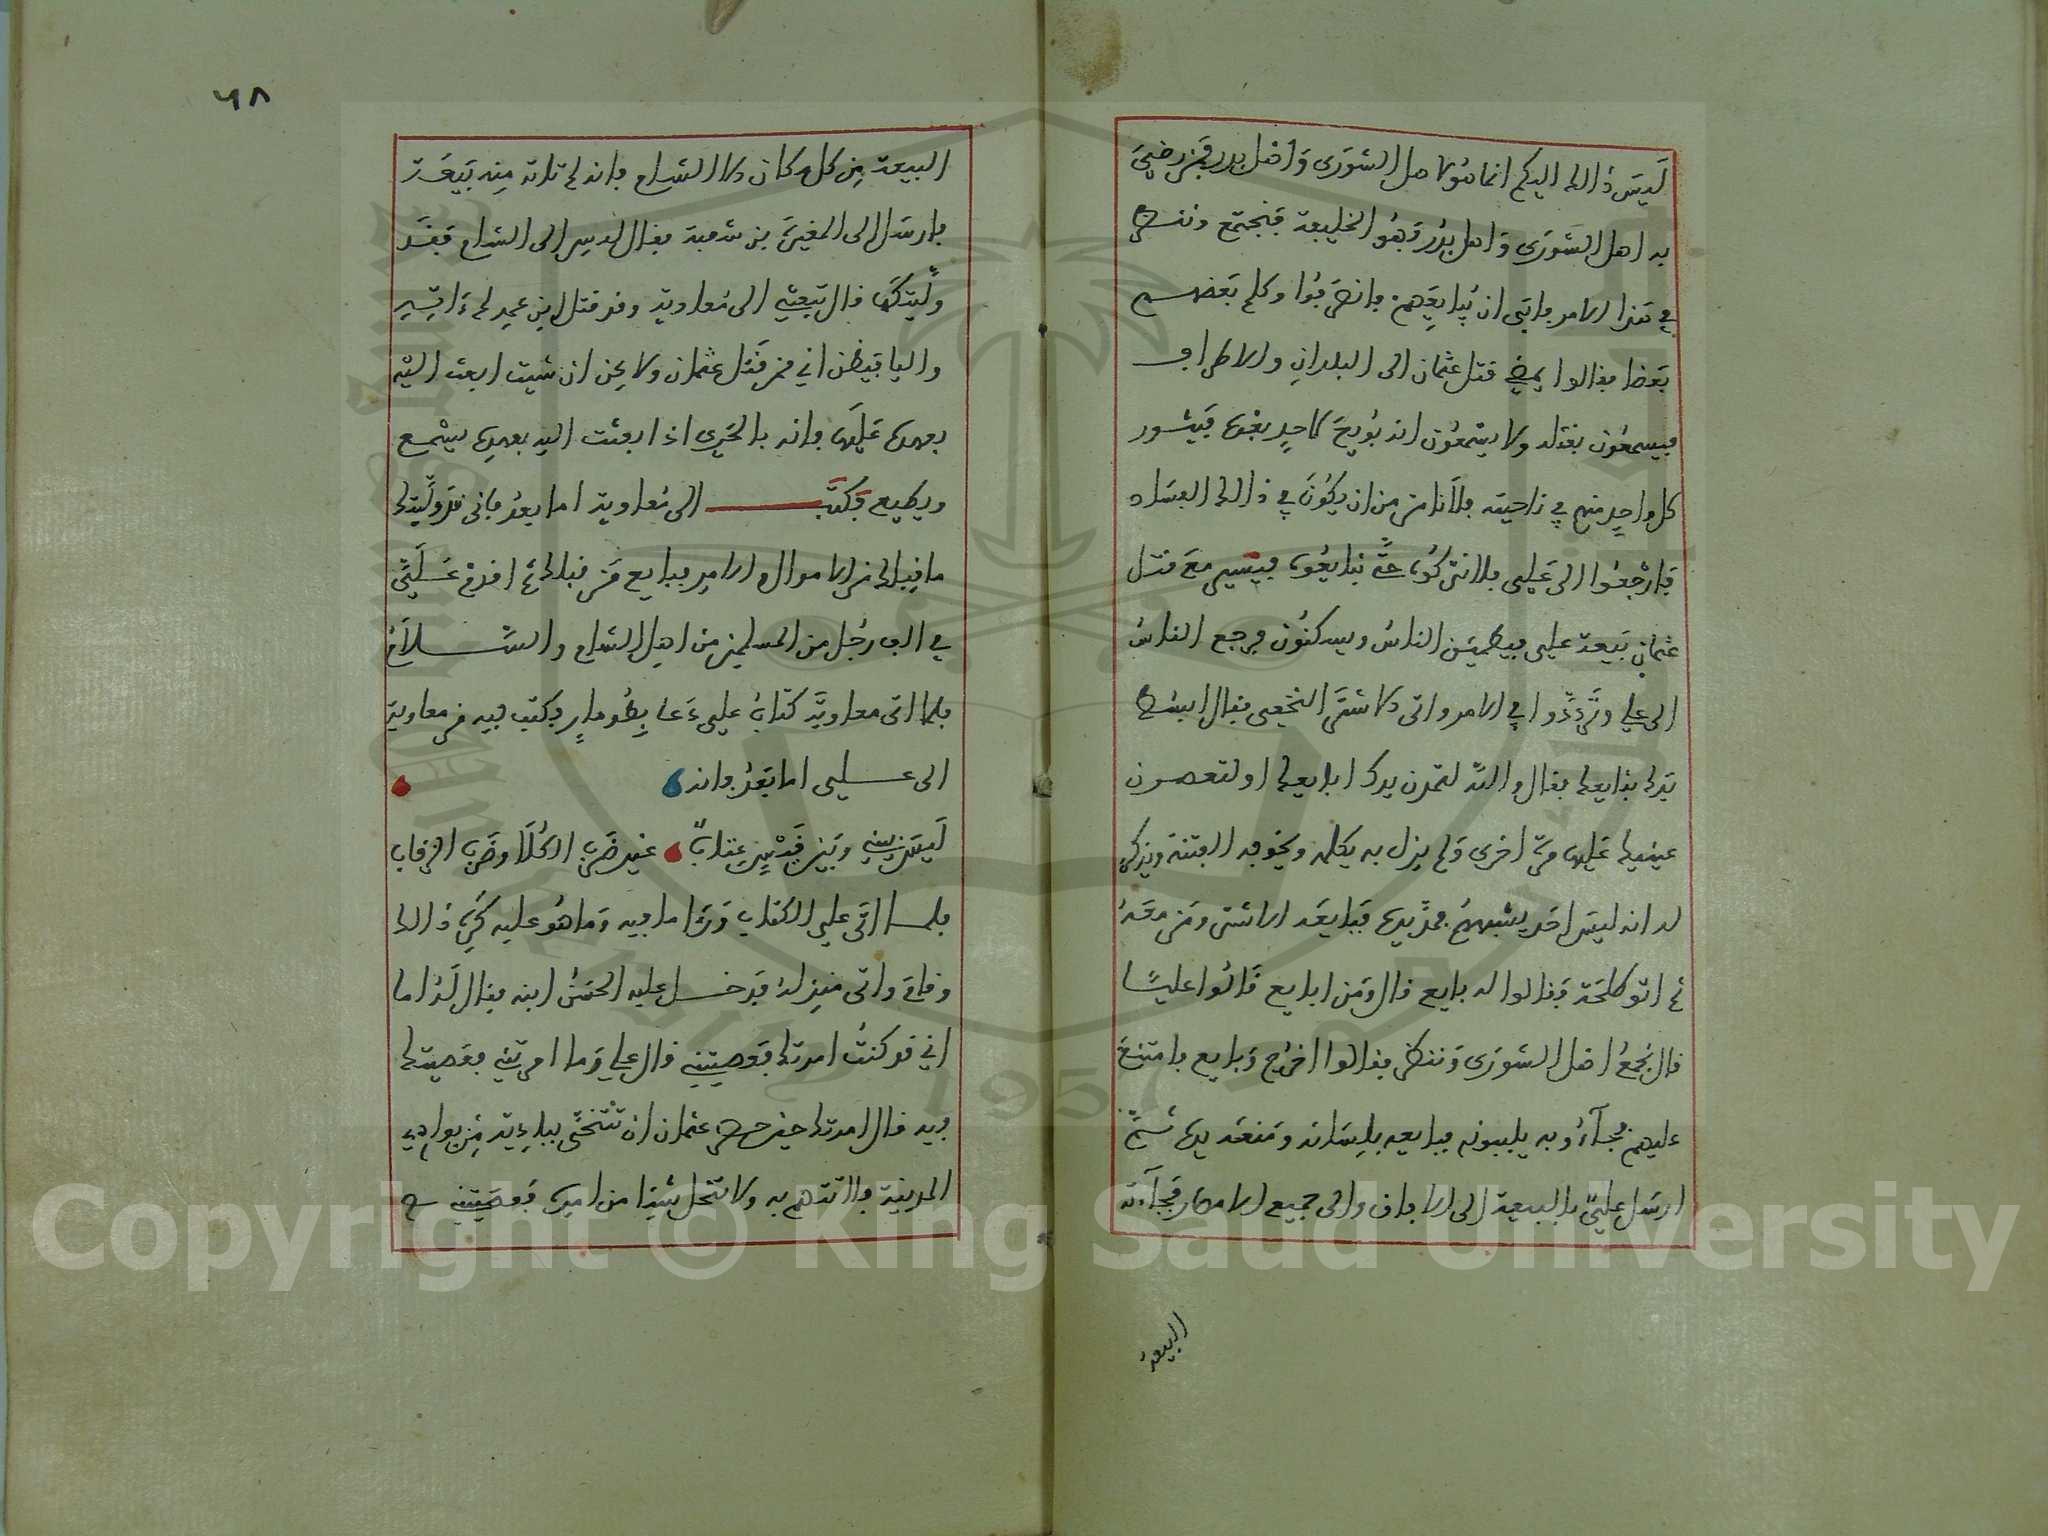 ليس ذالك اليكم انما هو لاهل الشورى واهل بدر فمن رضى
به اهل الشورى واهل بدر فهو الخليفة فنجتمع وننظر
في هذا الامر فابى ان يبايعهم فانصرفوا وكلم بعضهم
بعضا فقالوا يمضي قتل عثمان الى البلدان والاطراف
فيسمعون بقتله ولا يسمعون انه بويع لاحد بعده فيثور
كل واحد منهم في ناحيته فلا نامن من ان يكون في ذالك الفساد
فارجعوا الى علي فلا نتركه حتى نبايعه فيسير مع قتل
عثمان بيعة علي فيطمئن الناس ويسكنون فرجع الناس
الى علي وترددوا في الامر واتى الاشتر النخعي فقال ابسط
يدك نبايعك فقال والله لتمدن يدك ابايعك او لتعصرن
عينيك عليها مرة اخرى ولم يزل به يكلمه ويخوفه الفتنة ويذكر
له انه ليس احد يشبهه فمد يده فبايعه الاشتر ومن معه
ثم اتو طلحة فقالوا له بايع قال ومن ابايع قالوا عليا
قال نجمع اهل الشورى وننظر فقالوا اخرج وبايع فامتنع
عليهم فجاءوا به يلببونه فبايعه بلسانه ومنعه يده ثم
ارسل علي بالبيعة الى الافاق والى جميع الامصار فجاءته
البيعة
٦٨
البيعة من كل مكان الا الشام فانه لم تاته منه بيعة
فارسل الى المغيرة بن شعبة فقال له سر الى الشام فقد
وليتكها قال تبعثني الى معاوية وقد قتل ابن عمه لم اتيه
واليا فيظن اني من قتل عثمان ولاكن ان شيت ابعث اليه
بعهده عليها فانه بالحرى اذا بعثت اليه بعهده يسمع
ويطيع فكتب الى معاوية اما بعد فاني قد وليتك
ما قبلك من الاموال والامر فبايع من قبلك ثم اقدم علي
في الف رجل من المسلمين من اهل الشام والسلام
فلما اتى معاوية كتاب علي دعا بطومار فكتب فيه من معاوية
الى علي اما بعد فانه
ليس بيني وبين قيس عتاب غير ضرب الكلا وضرب الرقاب
فلما اتى علي الكتاب ورءا ما فيه وما هو عليه كره ذالك
وقام واتى منزله فدخل عليه الحسن ابنه فقال له اما
اني قد كنت امرتك فعصيتني قال علي وما امرتني فعصيتك
فيه قال امرتك حين حصر عثمان ان تتنحى ببادية من بوادي
المدينة فلا تتهم به ولا تتحل شيئا من امره فعصيتني